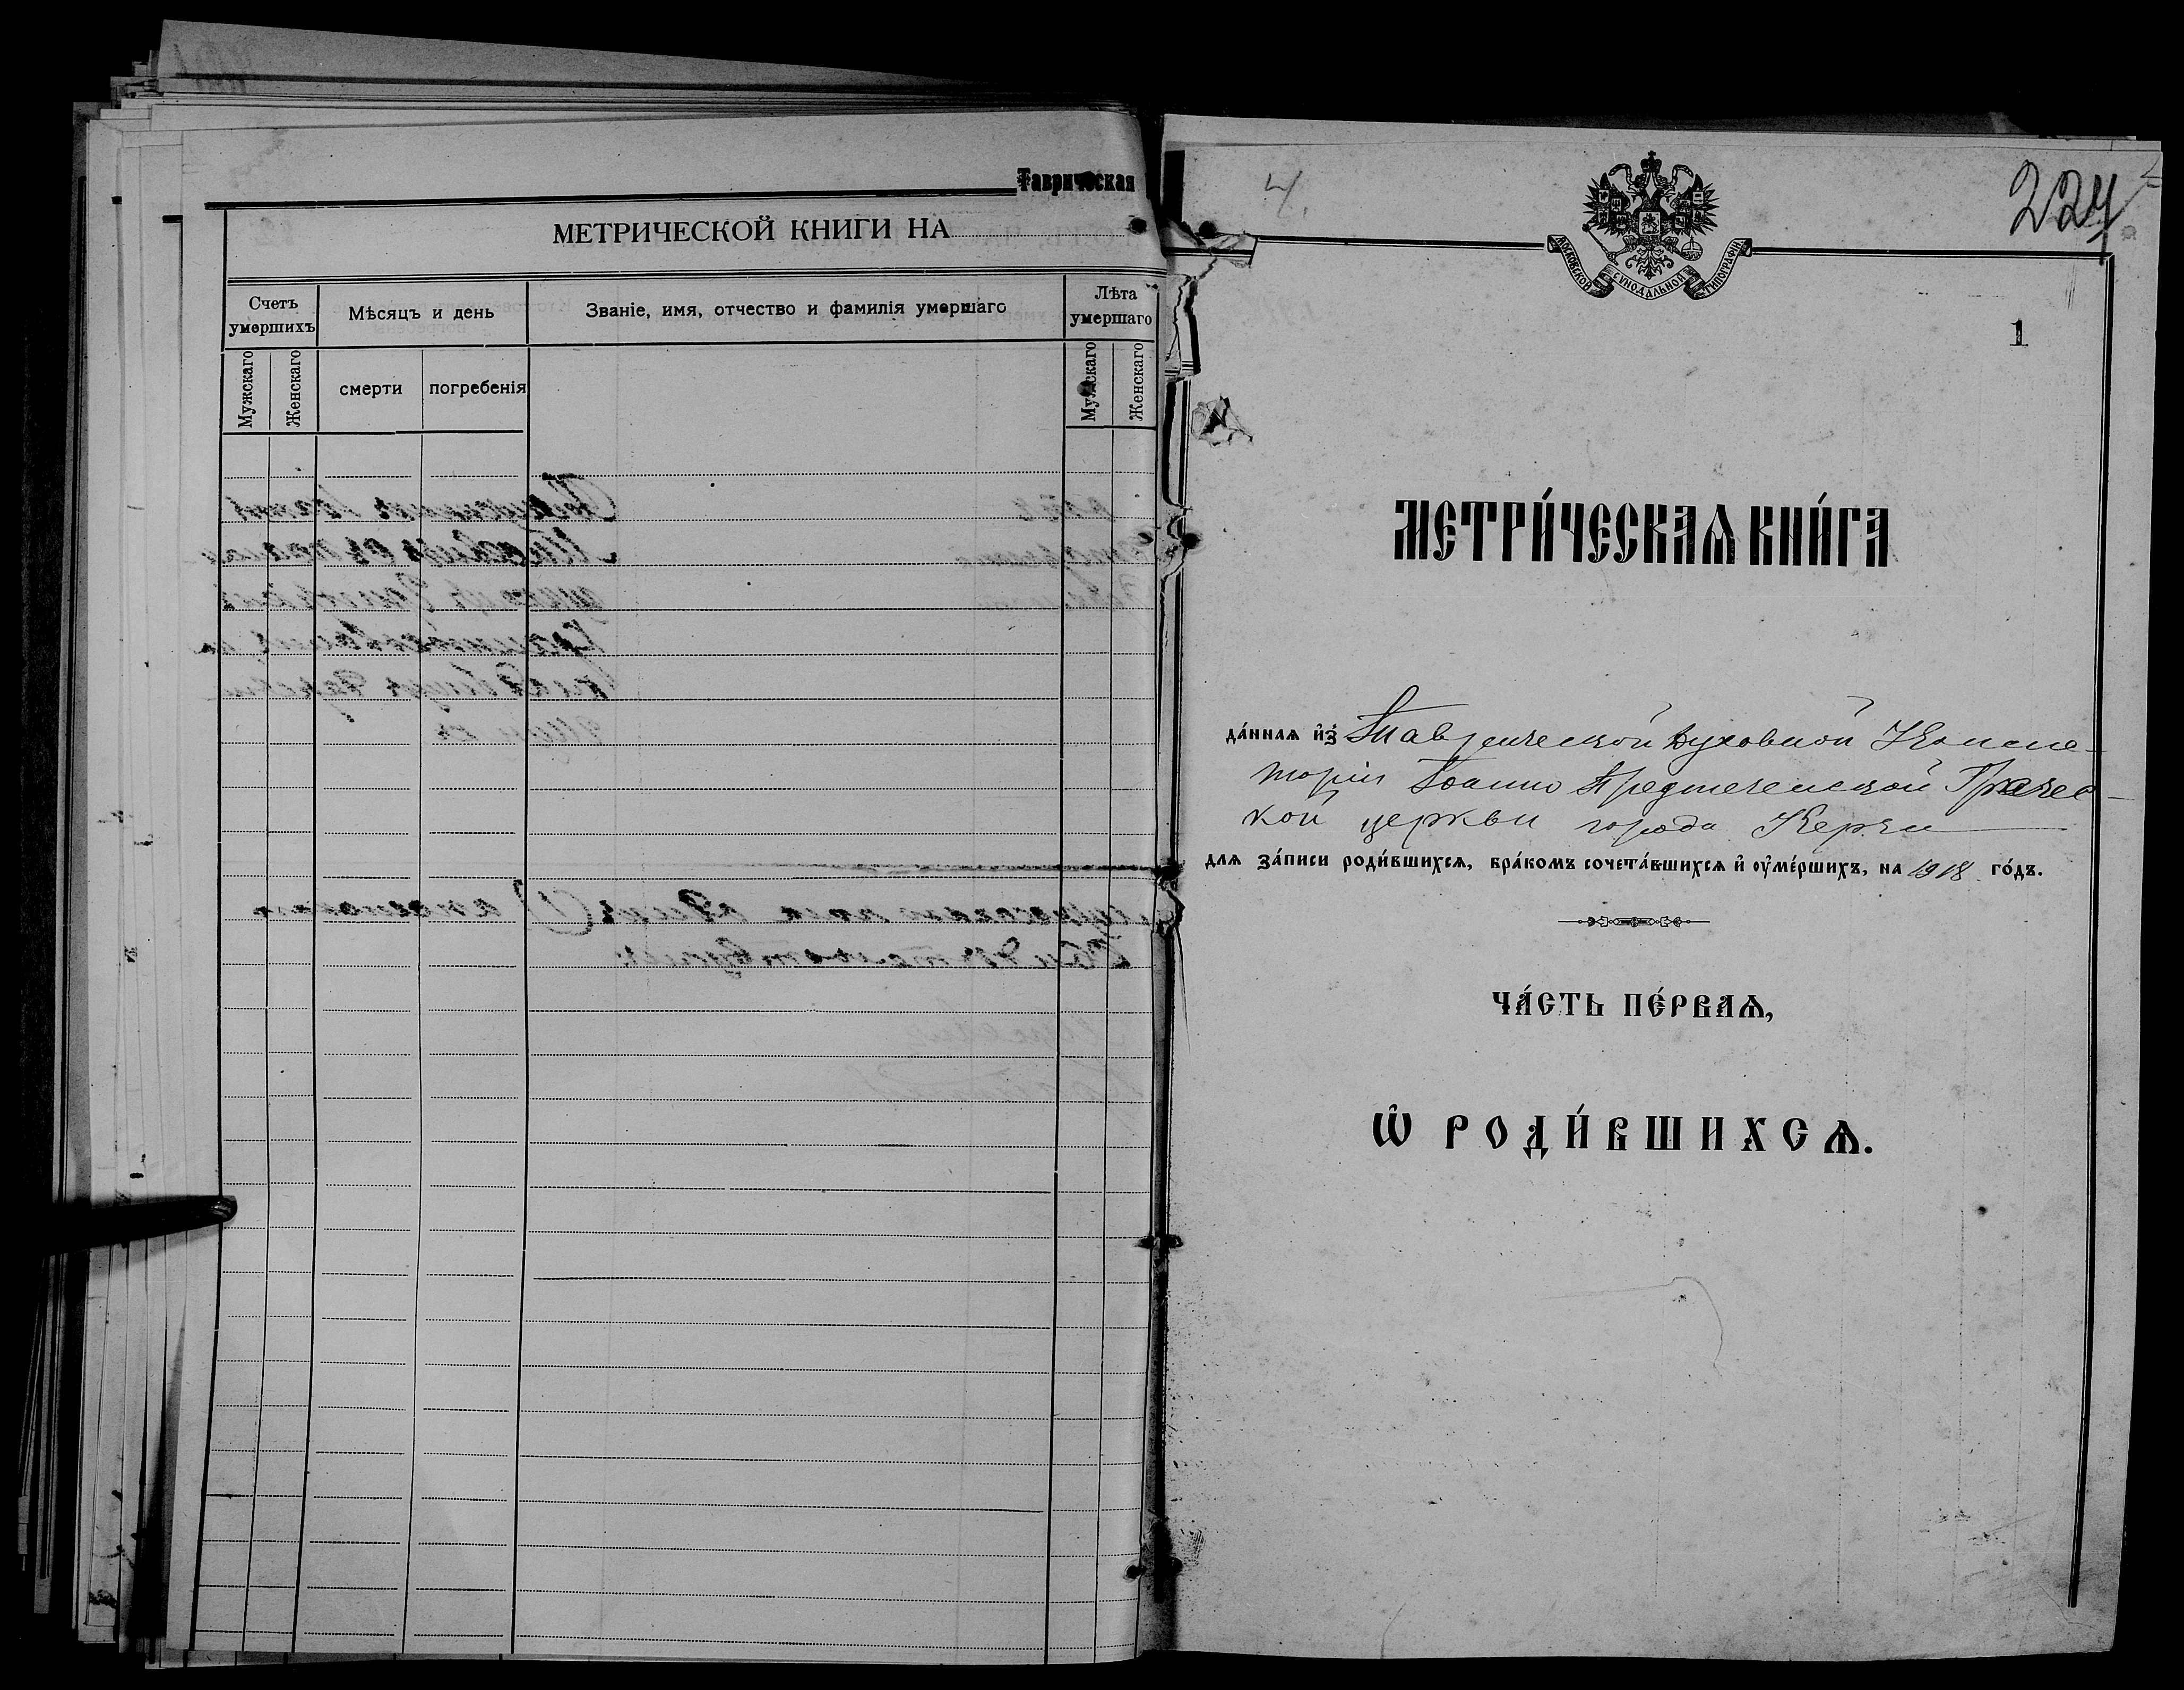 Таврическая
МЕТРИЧЕСКОЙ КНИГИ НА
Счетъ умершихъ
Мѣсяцъ и день
Званіе, имя, отчество и фамилія умершаго
Лѣта умершаго
Мужскаго
Женскаго
смерти
погребенія
Мужскаго
Женскаго
4.
224
МОСКОВСКОЙ СѴНОДАЛЬНОЙ ТИПОГРАФІИ
1
МЕТРИ́ЧЕСКАѦ КНИ́ГА
да́ннаѧ и҆з̾ Таврической Духовной Консис-
торіи Іоанно Предтеченской Гречес-
кой церкви города Керчи
длѧ за́писи роди́вшихсѧ, бра́комъ сочета́вшихсѧ и҆ ᲂу҆ме́ршихъ, на 1918 го́дъ.
ЧА́СТЬ ПЕ́РВАѦ,
Ѽ РОДИ́ВШИХСѦ.